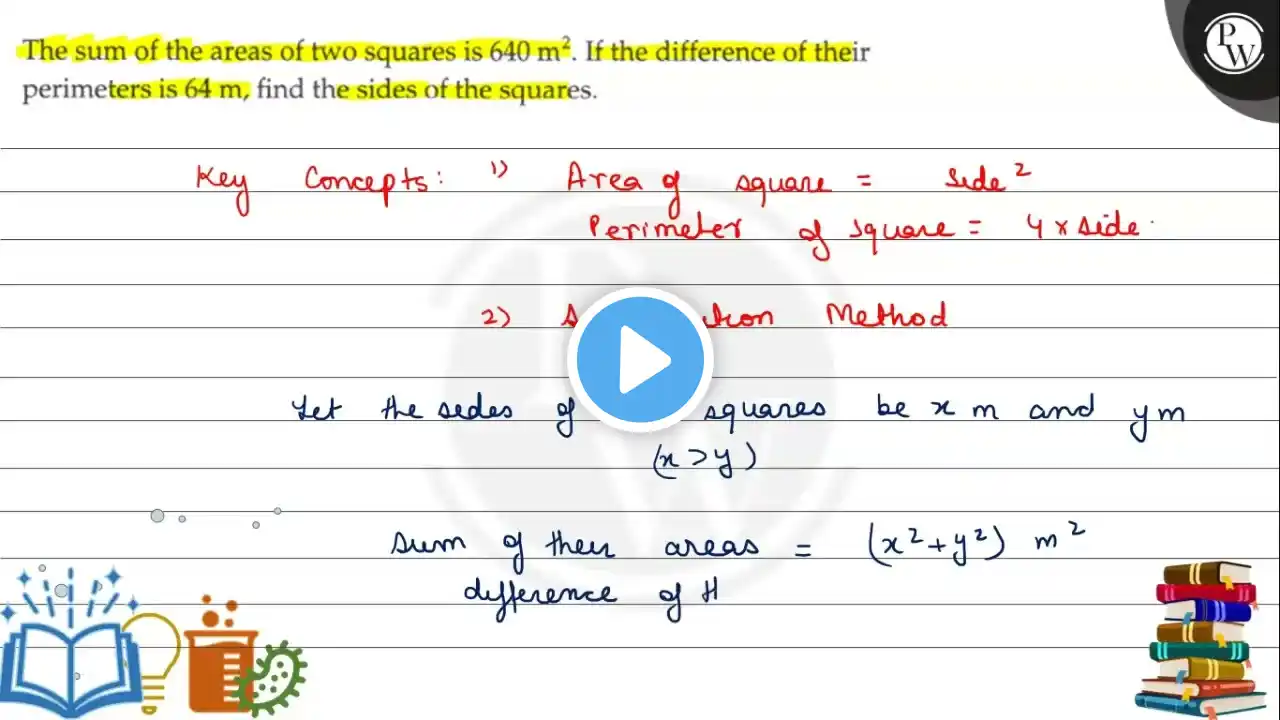 The sum of the areas of two squares is 640 m². If the difference of their
perimeters is 64 m, find the sides of the squares.
PW
Key Concepts: 1) Area of square = side²
Perimeter of square = 4 x side
2) Method
Let the sides of squares be x m and y m
(x > y)
Sum of their areas = (x² + y²) m²
difference of